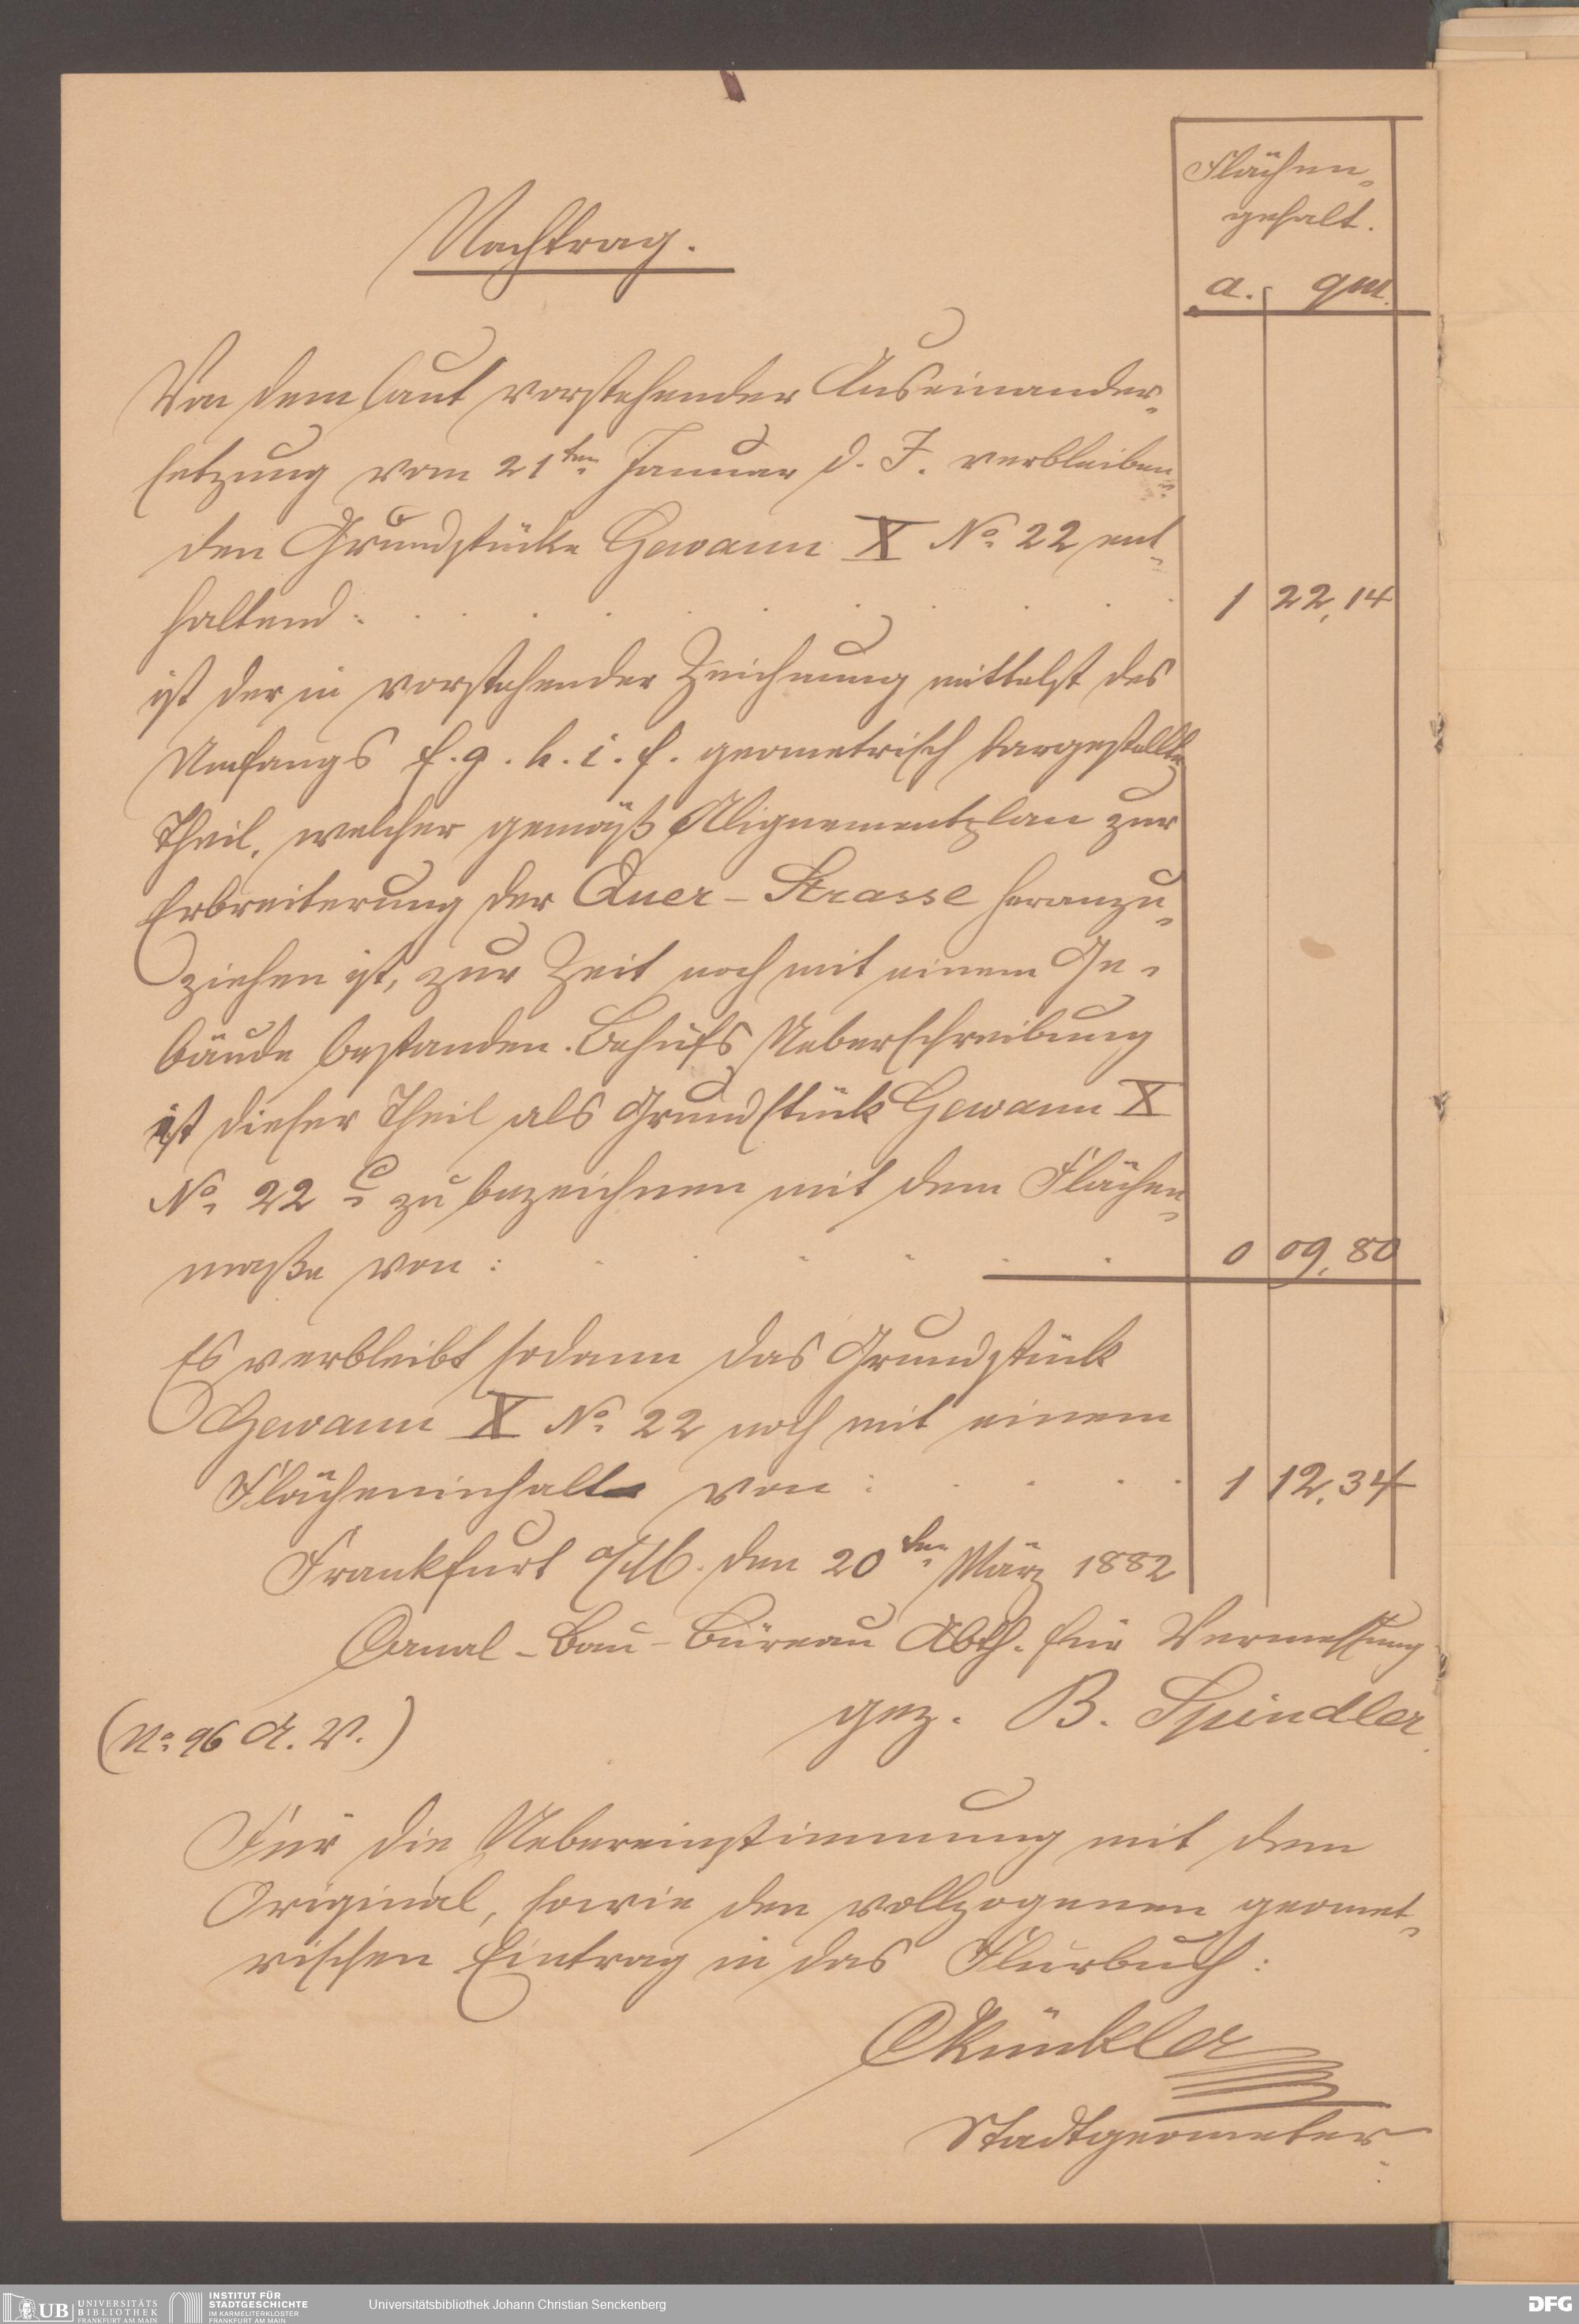 Flächen-
gehalt.
a. qm.
Nachtrag.
Von dem laut vorstehender Auseinander-
setzung vom 21ten Januar d. J. verbleiben-
den Grundstücke Gewann X No. 22 ent-
haltend: 1 22,14
ist der in vorstehender Zeichnung mittelst des
Umfangs f. g. h. i. f. geometrisch dargestellte
Theil, welcher gemäß Alignementplan zur
Erbreiterung der Quer-Strasse heranzu-
ziehen ist, zur Zeit noch mit einem Ge-
bäude bestanden. Behufs Ueberschreibung
ist dieser Theil als Grundstück Gewann X
No. 22 c zu bezeichnen mit dem Flächen-
maße von: 0 09,80
Es verbleibt sodann das Grundstück
Gewann X No. 22 noch mit einem
Flächeninhalt von: 1 12,34
Frankfurt a/M. den 20ten März 1882
Canal-Bau-Büreau Abth. für Vermessung
gez. B. Spindler.
(No. 96 A. V.)
Für die Uebereinstimmung mit dem
Original, sowie den vollzogenen geomet-
rischen Eintrag in das Flurbuch:
Stadtgeometer.
UB UNIVERSITÄTS
BIBLIOTHEK
FRANKFURT AM MAIN
INSTITUT FÜR
STADTGESCHICHTE
IM KARMELITERKLOSTER
FRANKFURT AM MAIN
Universitätsbibliothek Johann Christian Senckenberg
DFG